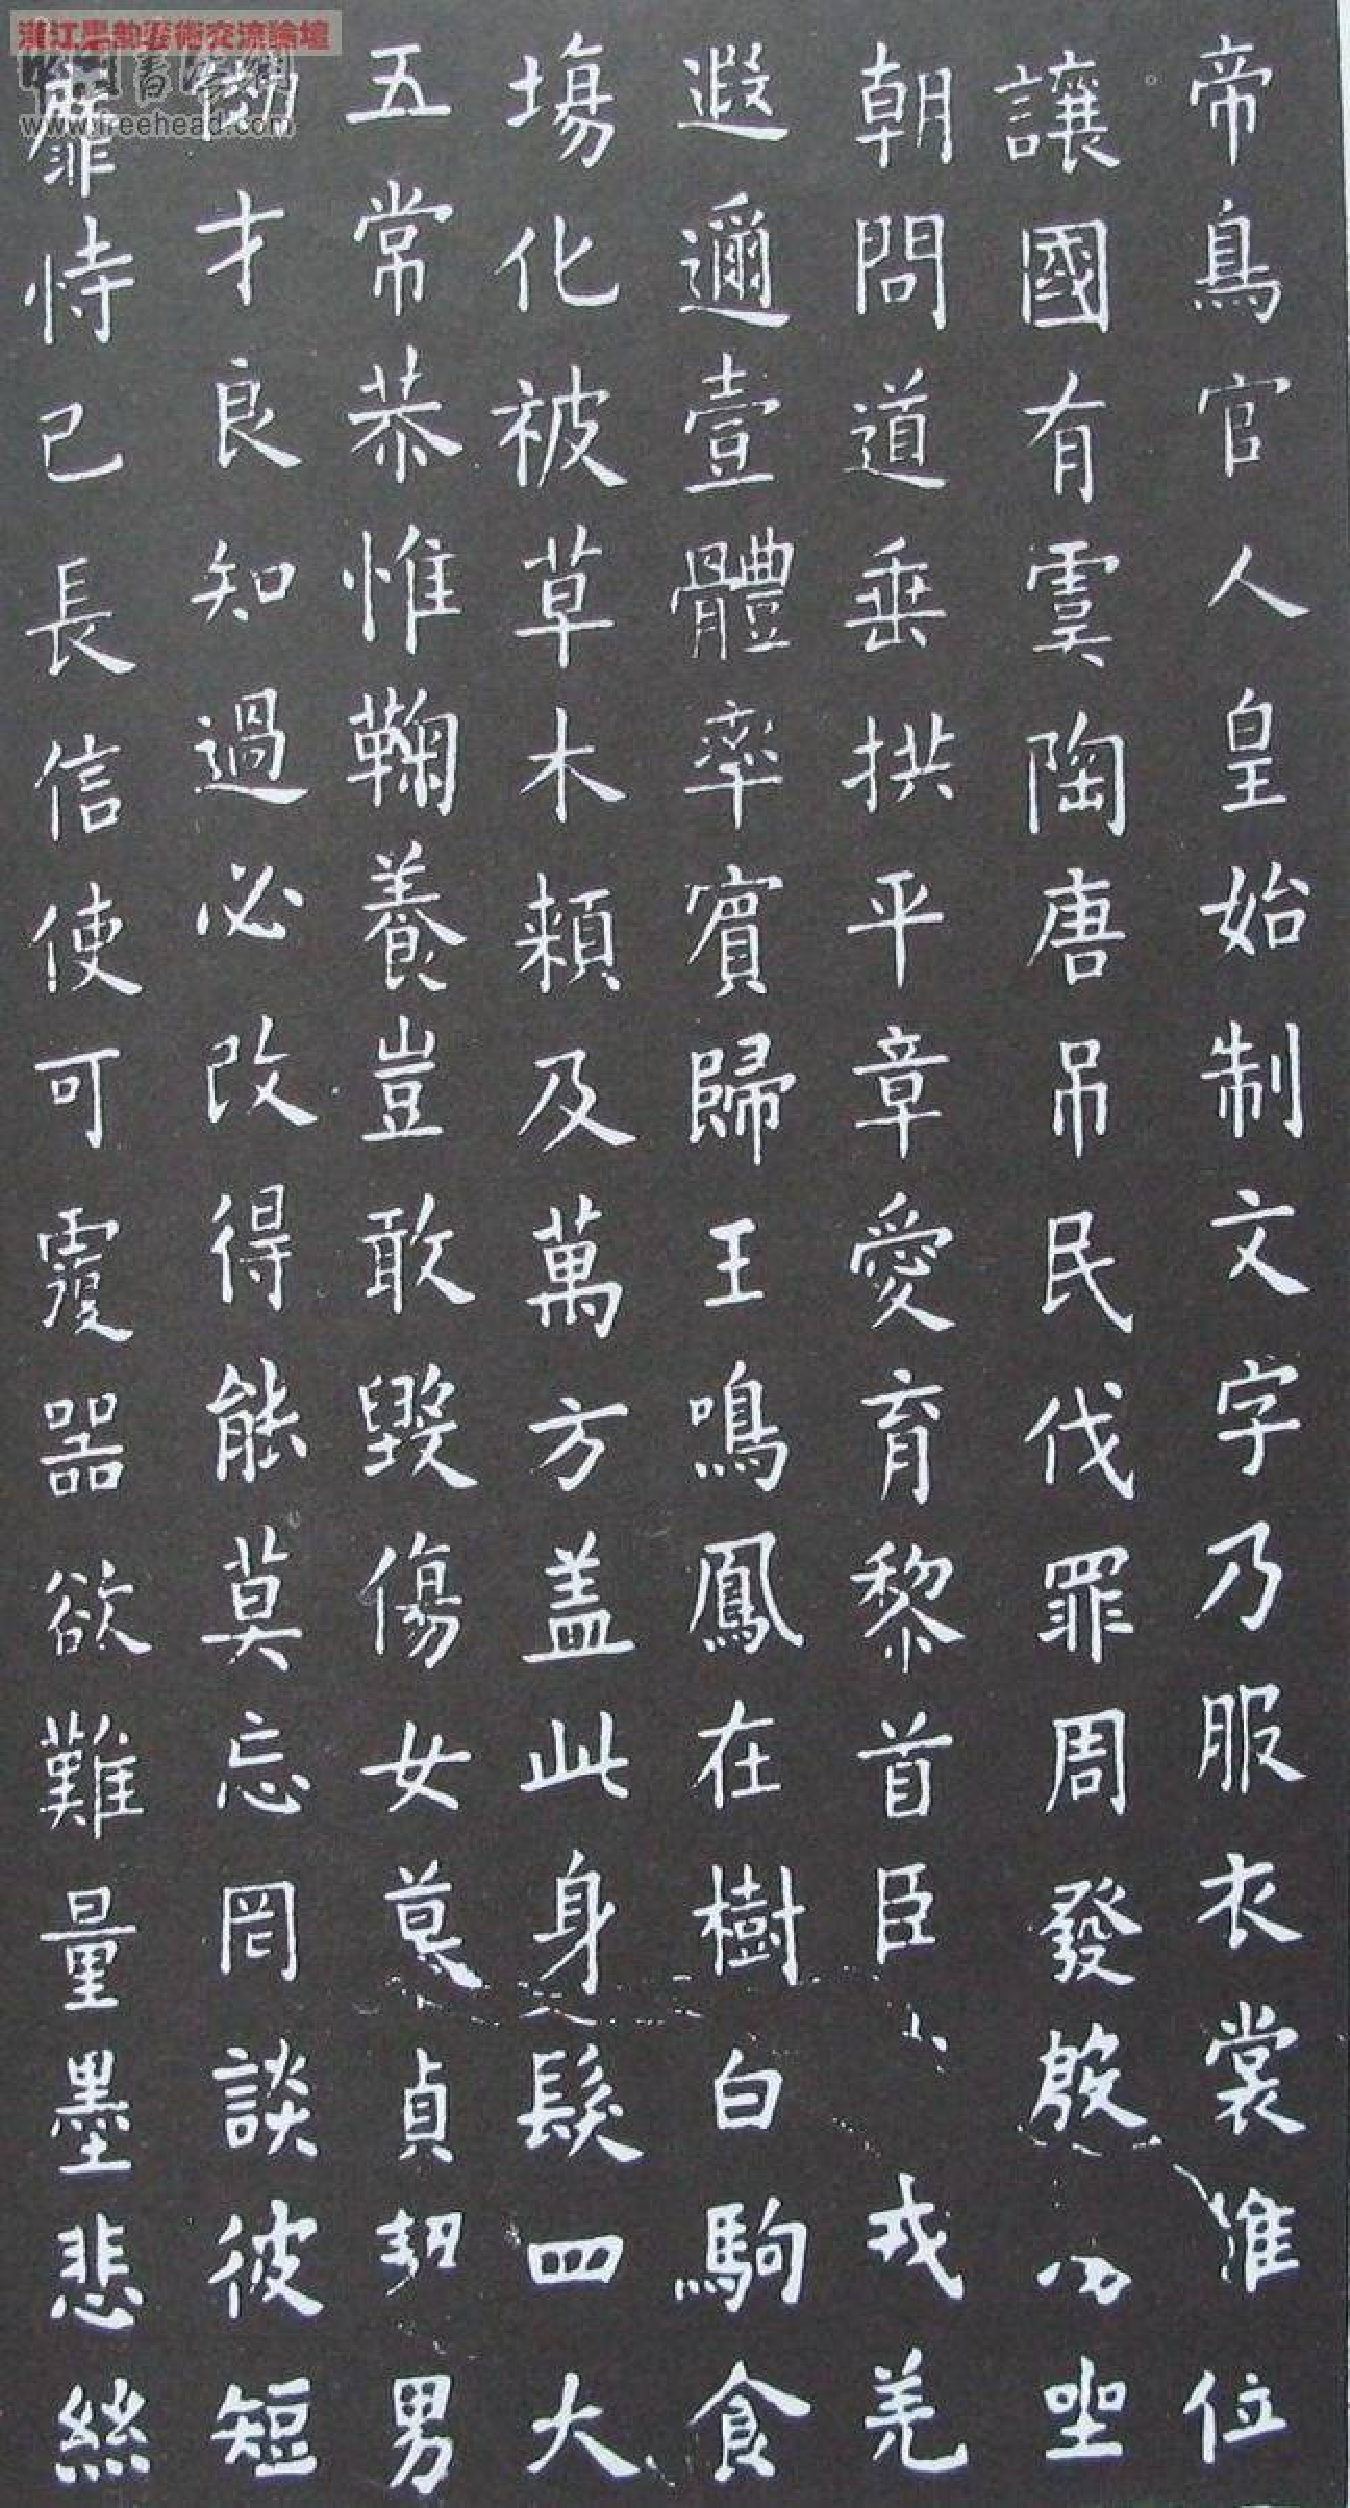 帝鳥官人皇始制文字乃服衣裳推位
讓國有虞陶唐吊民伐罪周發殷坐
朝問道垂拱平章愛育黎首臣戎羌
遐邇壹體率賓歸王鳴鳳在樹白駒食
場化被草木賴及萬方盖此身髮四大
五常恭惟鞠養豈敢毀傷女慕貞絜男
才良知過必改得能莫忘罔談彼短
靡恃己長信使可覆器欲難量墨悲絲
藝術交流論壇
書法網
www.freehead.com